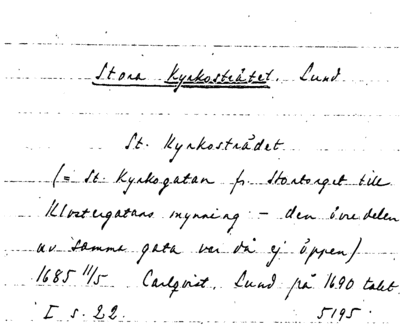 Stora Kyrkosträtet. Lund
St. Kyrkostrådet
(= St. Kyrkogatan fr. Stortorget till
Klostergatans mynning – den övre delen
av samma gata var då ej öppen)
1685 11/5 Carlqvist, Lund på 1690 talet
I s. 22. 5195